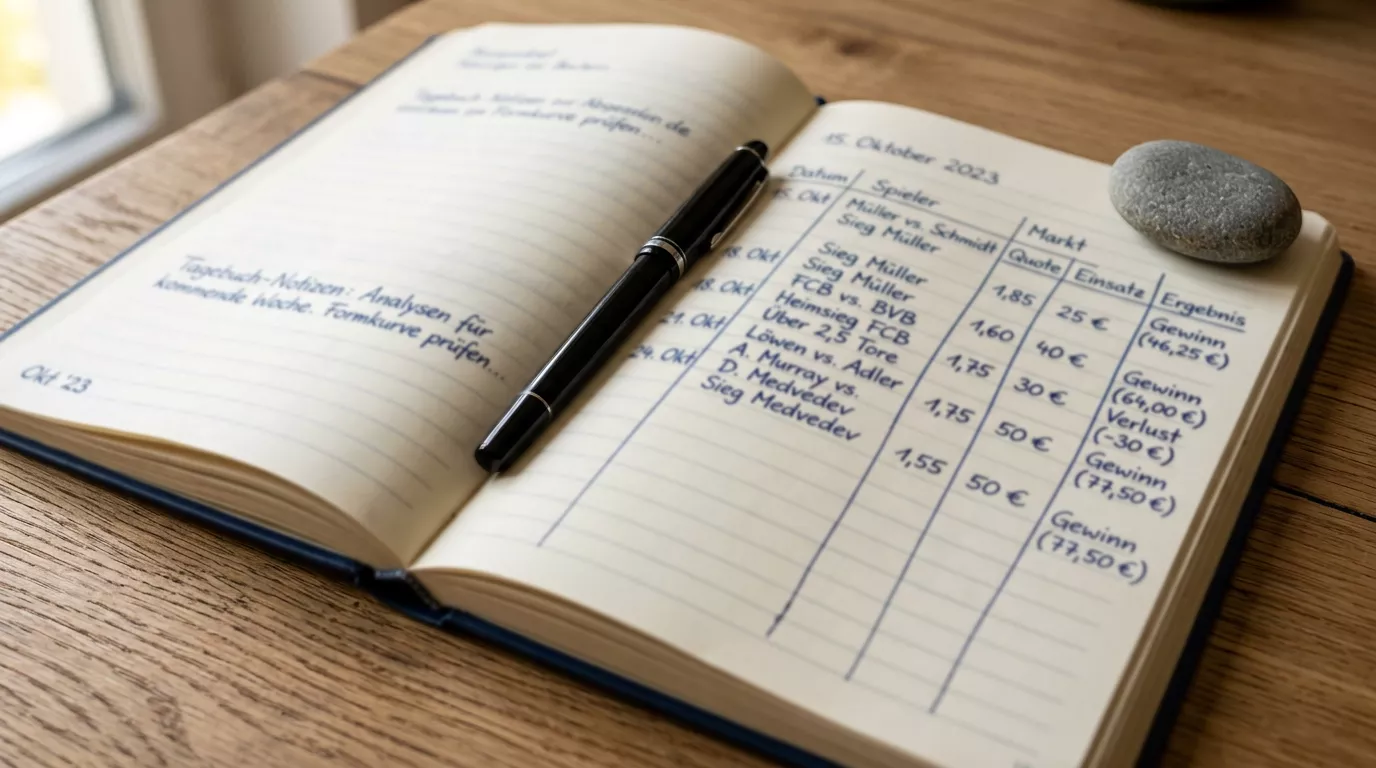 Tagebuch-Notizen zur
Formkurve prüfen...
Tagebuch-Notizen: Analysen für
kommende Woche. Formkurve prüfen...
Okt '23
15. Oktober 2023
Datum
Spieler
Markt
Quote
Einsatz
Ergebnis
Okt
Müller vs. Schmidt
Sieg Müller
1,85
25 €
Gewinn
(46,25 €)
18. Okt
Sieg Müller
Sieg Müller
1,60
40 €
Gewinn
(64,00 €)
18. Okt
FCB vs. BVB
Heimsieg FCB
1,75
30 €
Verlust
(-30 €)
21. Okt
Über 2,5 Tore
Löwen vs. Adler
1,75
50 €
Gewinn
(77,50 €)
24. Okt
A. Murray vs.
D. Medvedev
Sieg Medvedev
1,55
50 €
Gewinn
(77,50 €)